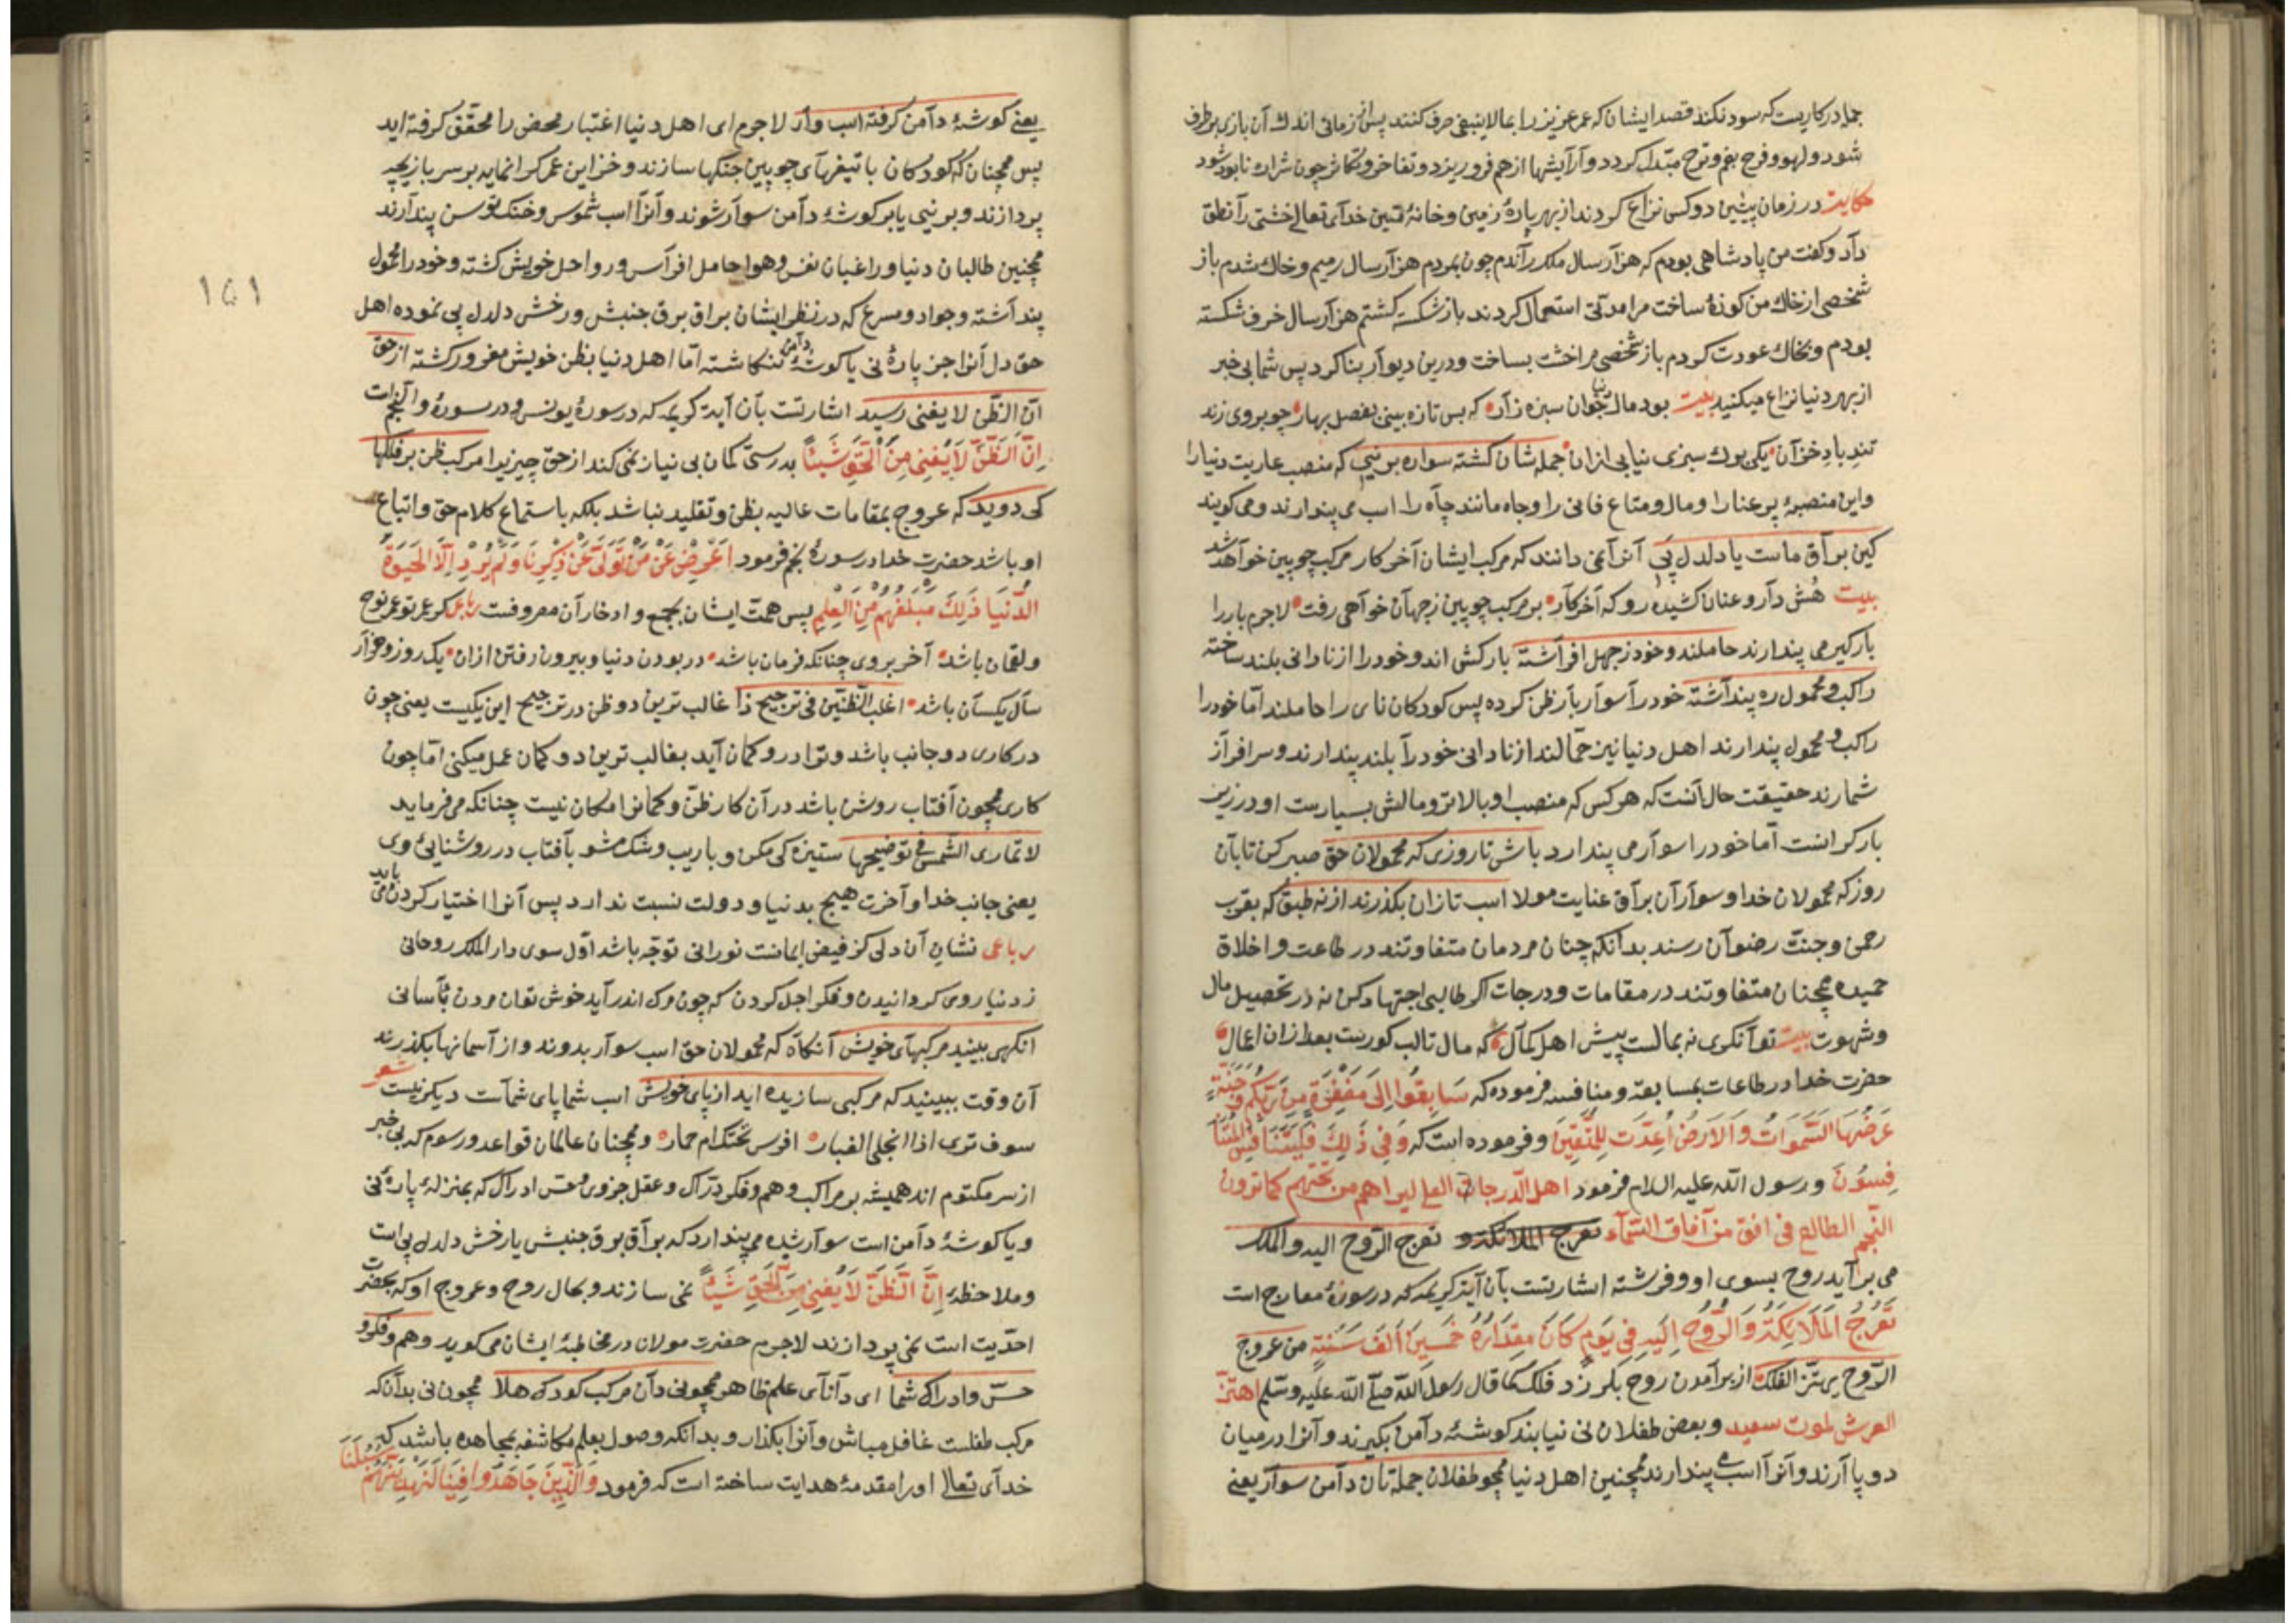 جمله در کاریست که سود نکند قصد ایشان که عمر عزیز را بمالاینبغی صرف کنند پس از زمانی اندك آن بازی برطرف
شود و لهو و فرح بغم و ترح مبتدل کردد و آرایشها از هم فرو ریزد و تفاخر و تکاثر چون شراره نابود شود
حکایت در زمان پیشین دو کس نزاع کردند از بهر پارۀ زمین و خانۀ خدای تعالی خشتی را نطق
داد و کفت من پادشاهی بودم که هزار سال ملك راندم چون بمردم هزار سال رمیم و خاك شدم باز
شخصی از خاك من کوزۀ ساخت مرا مدتی استعمال کردند باز شکسته کشتم هزار سال خزف شکسته
بودم و بخاك عودت کردم باز شخصی مرا خشت بساخت و درین دیوار بنا کرد پس شما بی خبر
از بهر دنیا نزاع میکنید بیت بود مال دنیا چوان سبزه زار که بس تازه بینی بفصل بهار چو بروی زند
تند باد خزان یکی بوك سبزی نیابی ازان جمله شان کشته سواره بر نیی که منصب عاریت دنیا را
و این منصبۀ پر عنا را و مال و متاع فانی را و جاه مانند چاه را اسب می پندارند و می کویند
کین براق ماست یا دلدل پیی آنرا نمی دانند که مرکب ایشان آخر کار مرکب چوبین خواهد شد
بیت هش دار و عنان کشیده رو که آخر کار بر مرکب چوبین ز جهان خواهی رفت لاجرم بار را
بارکیر می پندارند حاملند و خود ز جهل افراشته بارکش اند و خود را از نادانی بلند ساخته
راکب و محمول ره پنداشته خود را سوار بار ظن کرده پس کودکان نای را حاملند اما خود را
راکب و محمول پندارند اهل دنیا نیز حمالند از نادانی خود را بلند پندارند و سرافراز
شمارند حقیقت حال آنست که هر کس که منصب او بالاتر و مالش بسیارست او در زیر
بار کرانست اما خود را سوار می پندارد باش تا روزی که محمولان حق صبر کن تا بآن
روز که محمولان خدا و سواران براق عنایت مولا اسب تازان بکذرند از نه طبق که بقرب
رحمن و جنت رضوان رسند بدانکه چنان مردمان متفاوتند در طاعت و اخلاق
حمیده همچنان متفاوتند در مقامات و درجات اکر طالبی اجتهاد کن نه در تحصیل مال
و شهوت بیت توانکری نه بمالست پیش اهل کمال که مال تا لب کورست بعد ازان اعمال
حضرت خدا در طاعات بمسابقه و منافسه فرموده که سَابِقُوا اِلَى مَغْفِرَةٍ مِنْ رَبِّكُمْ وَ جَنَّةٍ
عَرْضُهَا السَّمَوَاتُ وَ الْاَرْضُ اُعِدَّتْ لِلْمُتَّقِينَ و فرموده است که وَ فِي ذَلِكَ فَلْيَتَنَافَسِ الْمُتَنَا
فِسُونَ و رسول الله علیه السلام فرمود اهل الدرجات العلی لیراهم من تحتهم کما ترون
النجم الطالع فی افق من آفاق السماء تعرج الملائکة و تعرج الروح الیه والملك
می برآید روح بسوی او و فرشته اشارتست بآن آیت کریمه که در سورۀ معارج است
تَعْرُجُ الْمَلَائِكَةُ وَ الرُّوحُ اِلَيْهِ فِي يَوْمٍ كَانَ مِقْدَارُهُ خَمْسِينَ اَلْفَ سَنَةٍ من عروج
الروح یهتز الفلك از برآمدن روح بلرزد فلك کما قال رسول الله صلی الله علیه وسلم اهتز
العرش لموت سعید و بعض طفلان نی نیابند کوشۀ دامن بکیرند و آنرا در میان
دو پا آرند و آنرا اسب می پندارند همچنین اهل دنیا همچو طفلان جمله تان دامن سوار یعنی
یعنی کوشۀ دامن کرفته اسب وار لاجرم ای اهل دنیا اعتبار محض را محقق کرفته اید
پس همچنان که کودکان با تیغهای چوبین جنکها سازند و خزاین عمر کرانمایه بر سر بازیچه
پردازند و بر نیی یا بر کوشۀ دامن سوار شوند و آنرا اسب شموس و خنك توسن پندارند
همچنین طالبان دنیا و راغبان نفس و هوا حامل افراس و رواحل خویش کشته و خود را محمول
پنداشته و جواد و مسرع که در نظر ایشان براق برق جنبش و رخش دلدل پی نموده اهل
حق دل آنرا جز پارۀ نی یا کوشۀ دامن ننکاشته اما اهل دنیا بظن خویش مغرور کشته از حق
ان الظن لا یغنی رسید اشارتست بآن آیت کریمه که در سورۀ یونس و در سورۀ و النجم است
اِنَّ الظَّنَّ لَا يُغْنِي مِنَ الْحَقِّ شَيْئًا بدرستی کمان بی نیاز نمی کند از حق چیزیرا مرکب ظن بر فلکها
کی دوید که عروج بمقامات عالیه بظن و تقلید نباشد بلکه باستماع کلام حق و اتباع
او باشد حضرت خدا در سورۀ نجم فرمود اَعْرِضْ عَنْ مَنْ تَوَلَّى عَنْ ذِكْرِنَا وَ لَمْ يُرِدْ اِلَّا الْحَيَوةَ
الدُّنْيَا ذَلِكَ مَبْلَغُهُمْ مِنَ الْعِلْمِ پس همت ایشان بجمع و ادخار آن مصروفست رباعی کر عمر تو عمر نوح
و لقمان باشد آخر بروی چنانکه فرمان باشد در بودن دنیا و بیرون رفتن ازان یک روز و هزار
سال یکسان باشد اغلب الظنین فی ترجیح ذا غالب ترین دو ظن در ترجیح این یکیست یعنی چون
در کاری دو جانب باشد و ترا در و کمان آید بغالب ترین دو کمان عمل میکنی اما چون
کاری همچون آفتاب روشن باشد در آن کار ظن و کمانرا امکان نیست چنانکه می فرماید
لا تماری الشمس فی توضیحها ستیزه کی مکن و با ریب و شك مشو بآفتاب در روشنایئ وی
یعنی جانب خدا و آخرت هیچ بدنیا و دولت نسبت ندارد پس آنرا اختیار کردن می باید
رباعی نشان آن دلی کز فیض ایمانست نورانی توجه باشد اول سوی دار الملك روحانی
ز دنیا روی کردانیدن و فکر اجل کردن که چون مرك اندر آید خوش توان مردن بآسانی
انکهی بینید مرکبهای خویش آنکاه که محمولان حق اسب سوار بدوند و از آسمانها بکذرند
آن وقت ببینید که مرکبی سازیده اید از پای خویش اسب شما پای شماست دیکر نیست شعر
سوف تری اذا انجلی الغبار افرس تحتك ام حمار و همچنان عالمان قواعد و رسوم که بی خبر
از سر مکتوم اند همیشه بر مراکب وهم و فکر دراك و عقل جزوی و حس ادراك که بمنزلۀ پارۀ نی
و یا کوشۀ دامن است سوار شده می پندارد که براق برق جنبش یا رخش دلدل پی است
و ملاحظۀ اِنَّ الظَّنَّ لَا يُغْنِي مِنَ الْحَقِّ شَيْئًا نمی سازند و بحال روح و عروج او که بحضرت
احدیت است نمی پردازند لاجرم حضرت مولانا در مخاطبۀ ایشان می کوید وهم و فکر و
حس و ادراك شما ای دانای علم ظاهر همچو نی دان مرکب کودك هلا همچون نی بدان که
مرکب طفلست غافل مباش و آنرا بکذار و بدانکه وصول بعلم مکاشفه بمجاهده باشد که
خدای تعالی او را مقدمۀ هدایت ساخته است که فرمود وَ الَّذِينَ جَاهَدُوا فِينَا لَنَهْدِيَنَّهُمْ سُبُلَنَا
١٥١